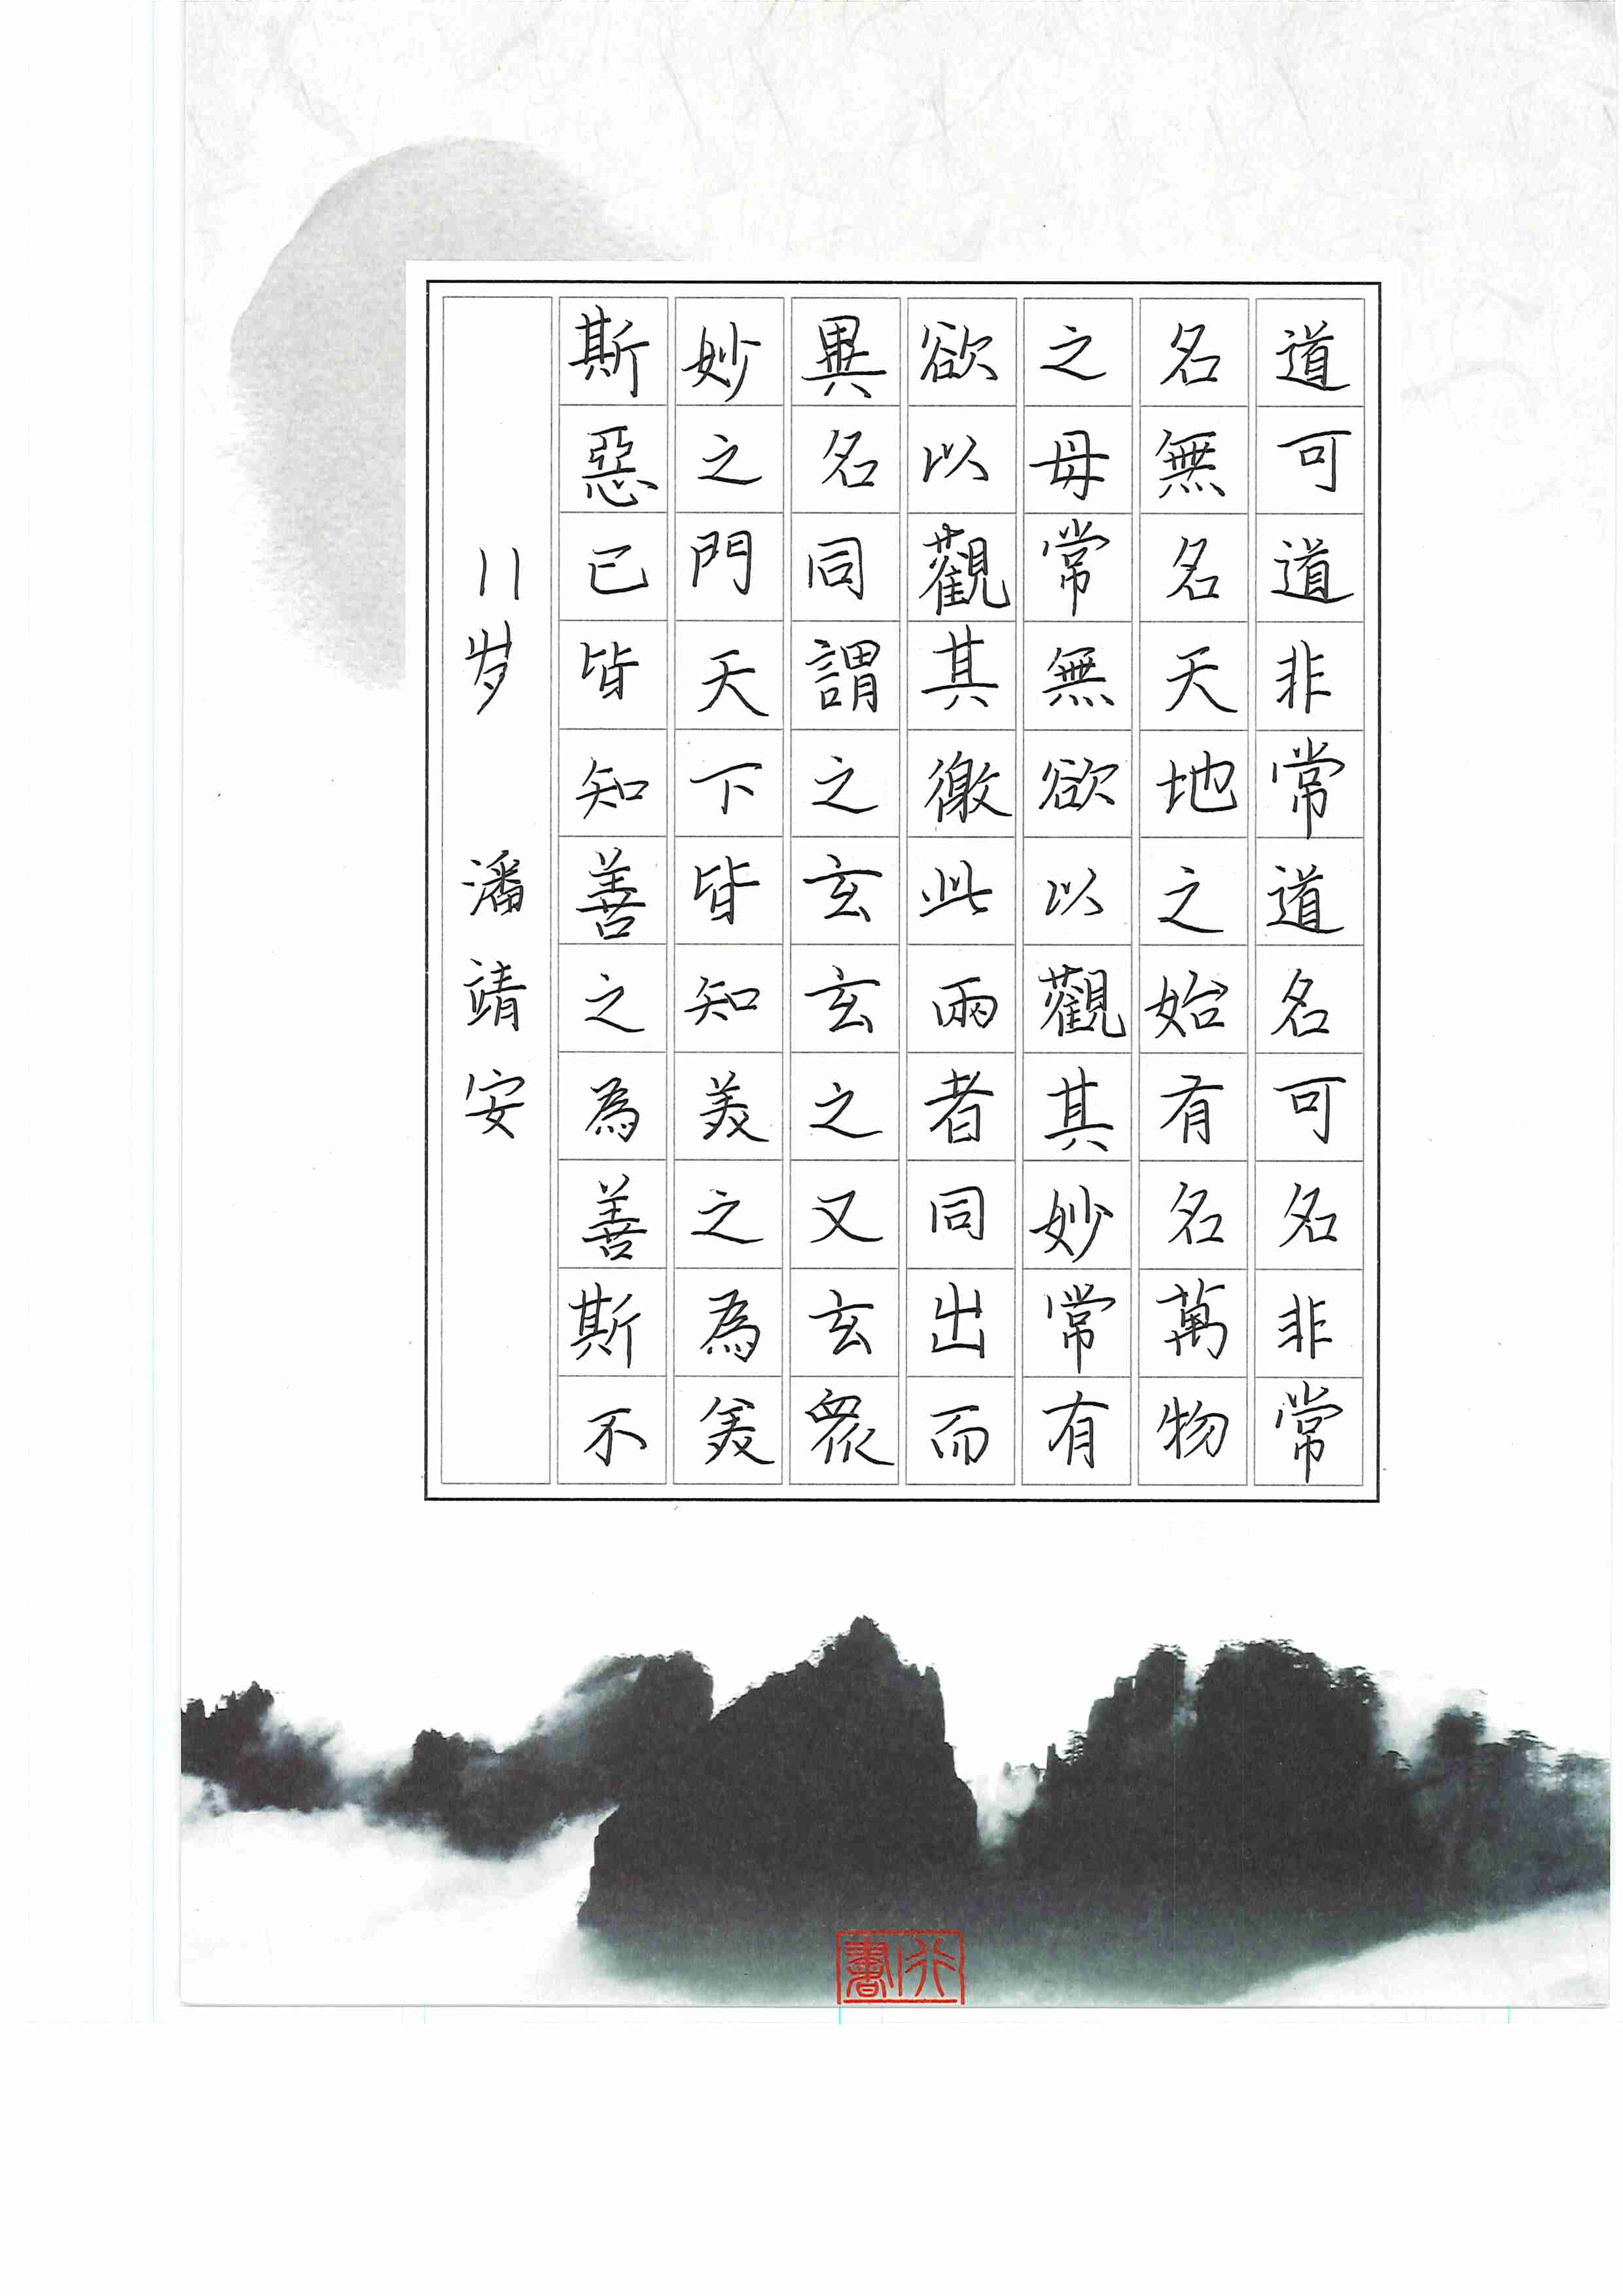 道可道非常道名可名非常
名無名天地之始有名萬物
之母常無欲以觀其妙常有
欲以觀其徼此兩者同出而
異名同謂之玄玄之又玄眾
妙之門天下皆知美之為美
斯惡已皆知善之為善斯不
11岁 潘靖安